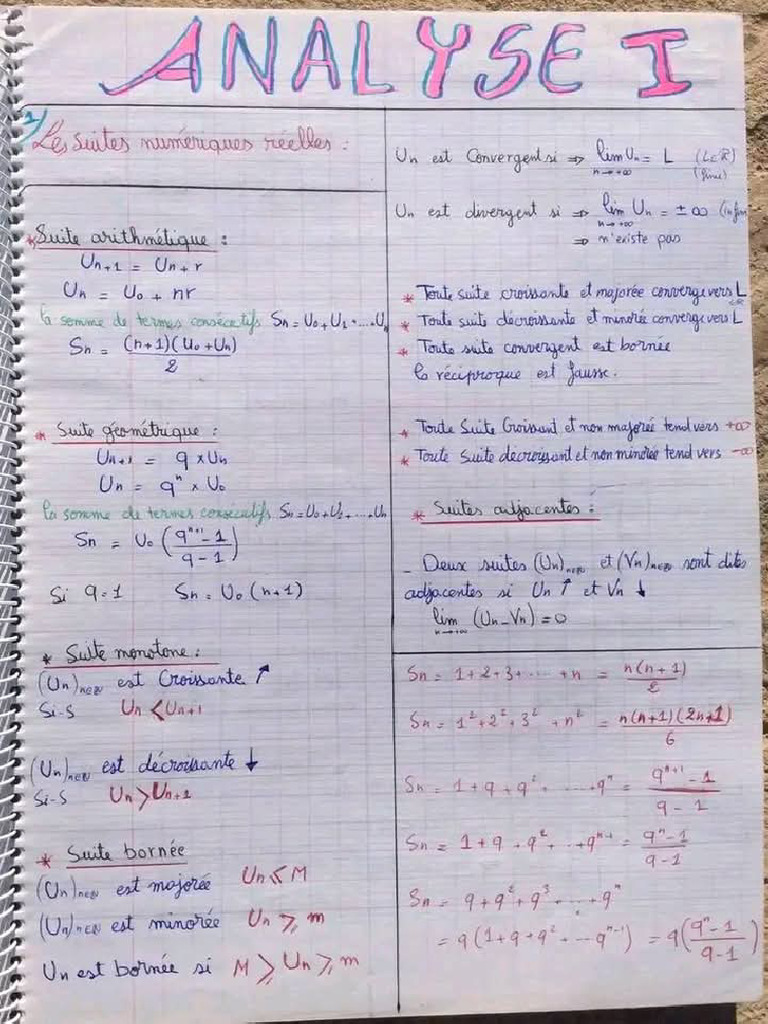 ANALYSE I
1) Les suites numériques réelles :
* Suite arithmétique :
Un+1 = Un + r
Un = U0 + nr
la somme de termes consécutifs Sn = U0 + U1 + ... + Un
Sn = (n+1)(U0+Un) / 2
* Suite géométrique :
Un+1 = q × Un
Un = qⁿ × U0
la somme de termes consecutifs Sn = U0 + U1 + ... + Un
Sn = U0 (qⁿ⁺¹ - 1 / q - 1)
Si q = 1 Sn = U0 (n+1)
* Suite monotone :
(Un)n∈ℕ est Croissante ↗
Si-S Un < Un+1
(Un)n∈ℕ est décroissante ↓
Si-S Un > Un+1
* Suite bornée
(Un)n∈ℕ est majorée Un ≤ M
(Un)n∈ℕ est minorée Un ≥ m
Un est bornée si M ≥ Un ≥ m
Un est Convergent si ⇒ lim Un = L (L∈ℝ)
n→+∞ (fini)
Un est divergent si ⇒ lim Un = ±∞ (infini
n→+∞
⇒ n'existe pas
* Toute suite croissante et majorée converge vers L
* Toute suite décroissante et minorée converge vers L
* Toute suite convergent est bornée
la réciproque est fausse.
* Toute Suite Croissant et non majorée tend vers +∞
* Toute suite décroissant et non minorée tend vers -∞
* Suites adjacentes :
- Deux suites (Un)n∈ℕ et (Vn)n∈ℕ sont dites
adjacentes si Un ↑ et Vn ↓
lim (Un - Vn) = 0
n→+∞
Sn = 1 + 2 + 3 + ... + n = n(n+1) / 2
Sn = 1² + 2² + 3² + n² = n(n+1)(2n+1) / 6
Sn = 1 + q + q² + ... + qⁿ = qⁿ⁺¹ - 1 / q - 1
Sn = 1 + q + q² + ... + qⁿ⁻¹ = qⁿ - 1 / q - 1
Sn = q + q² + q³ + ... + qⁿ
= q(1 + q + q² + ... qⁿ⁻¹) = q(qⁿ - 1 / q - 1)